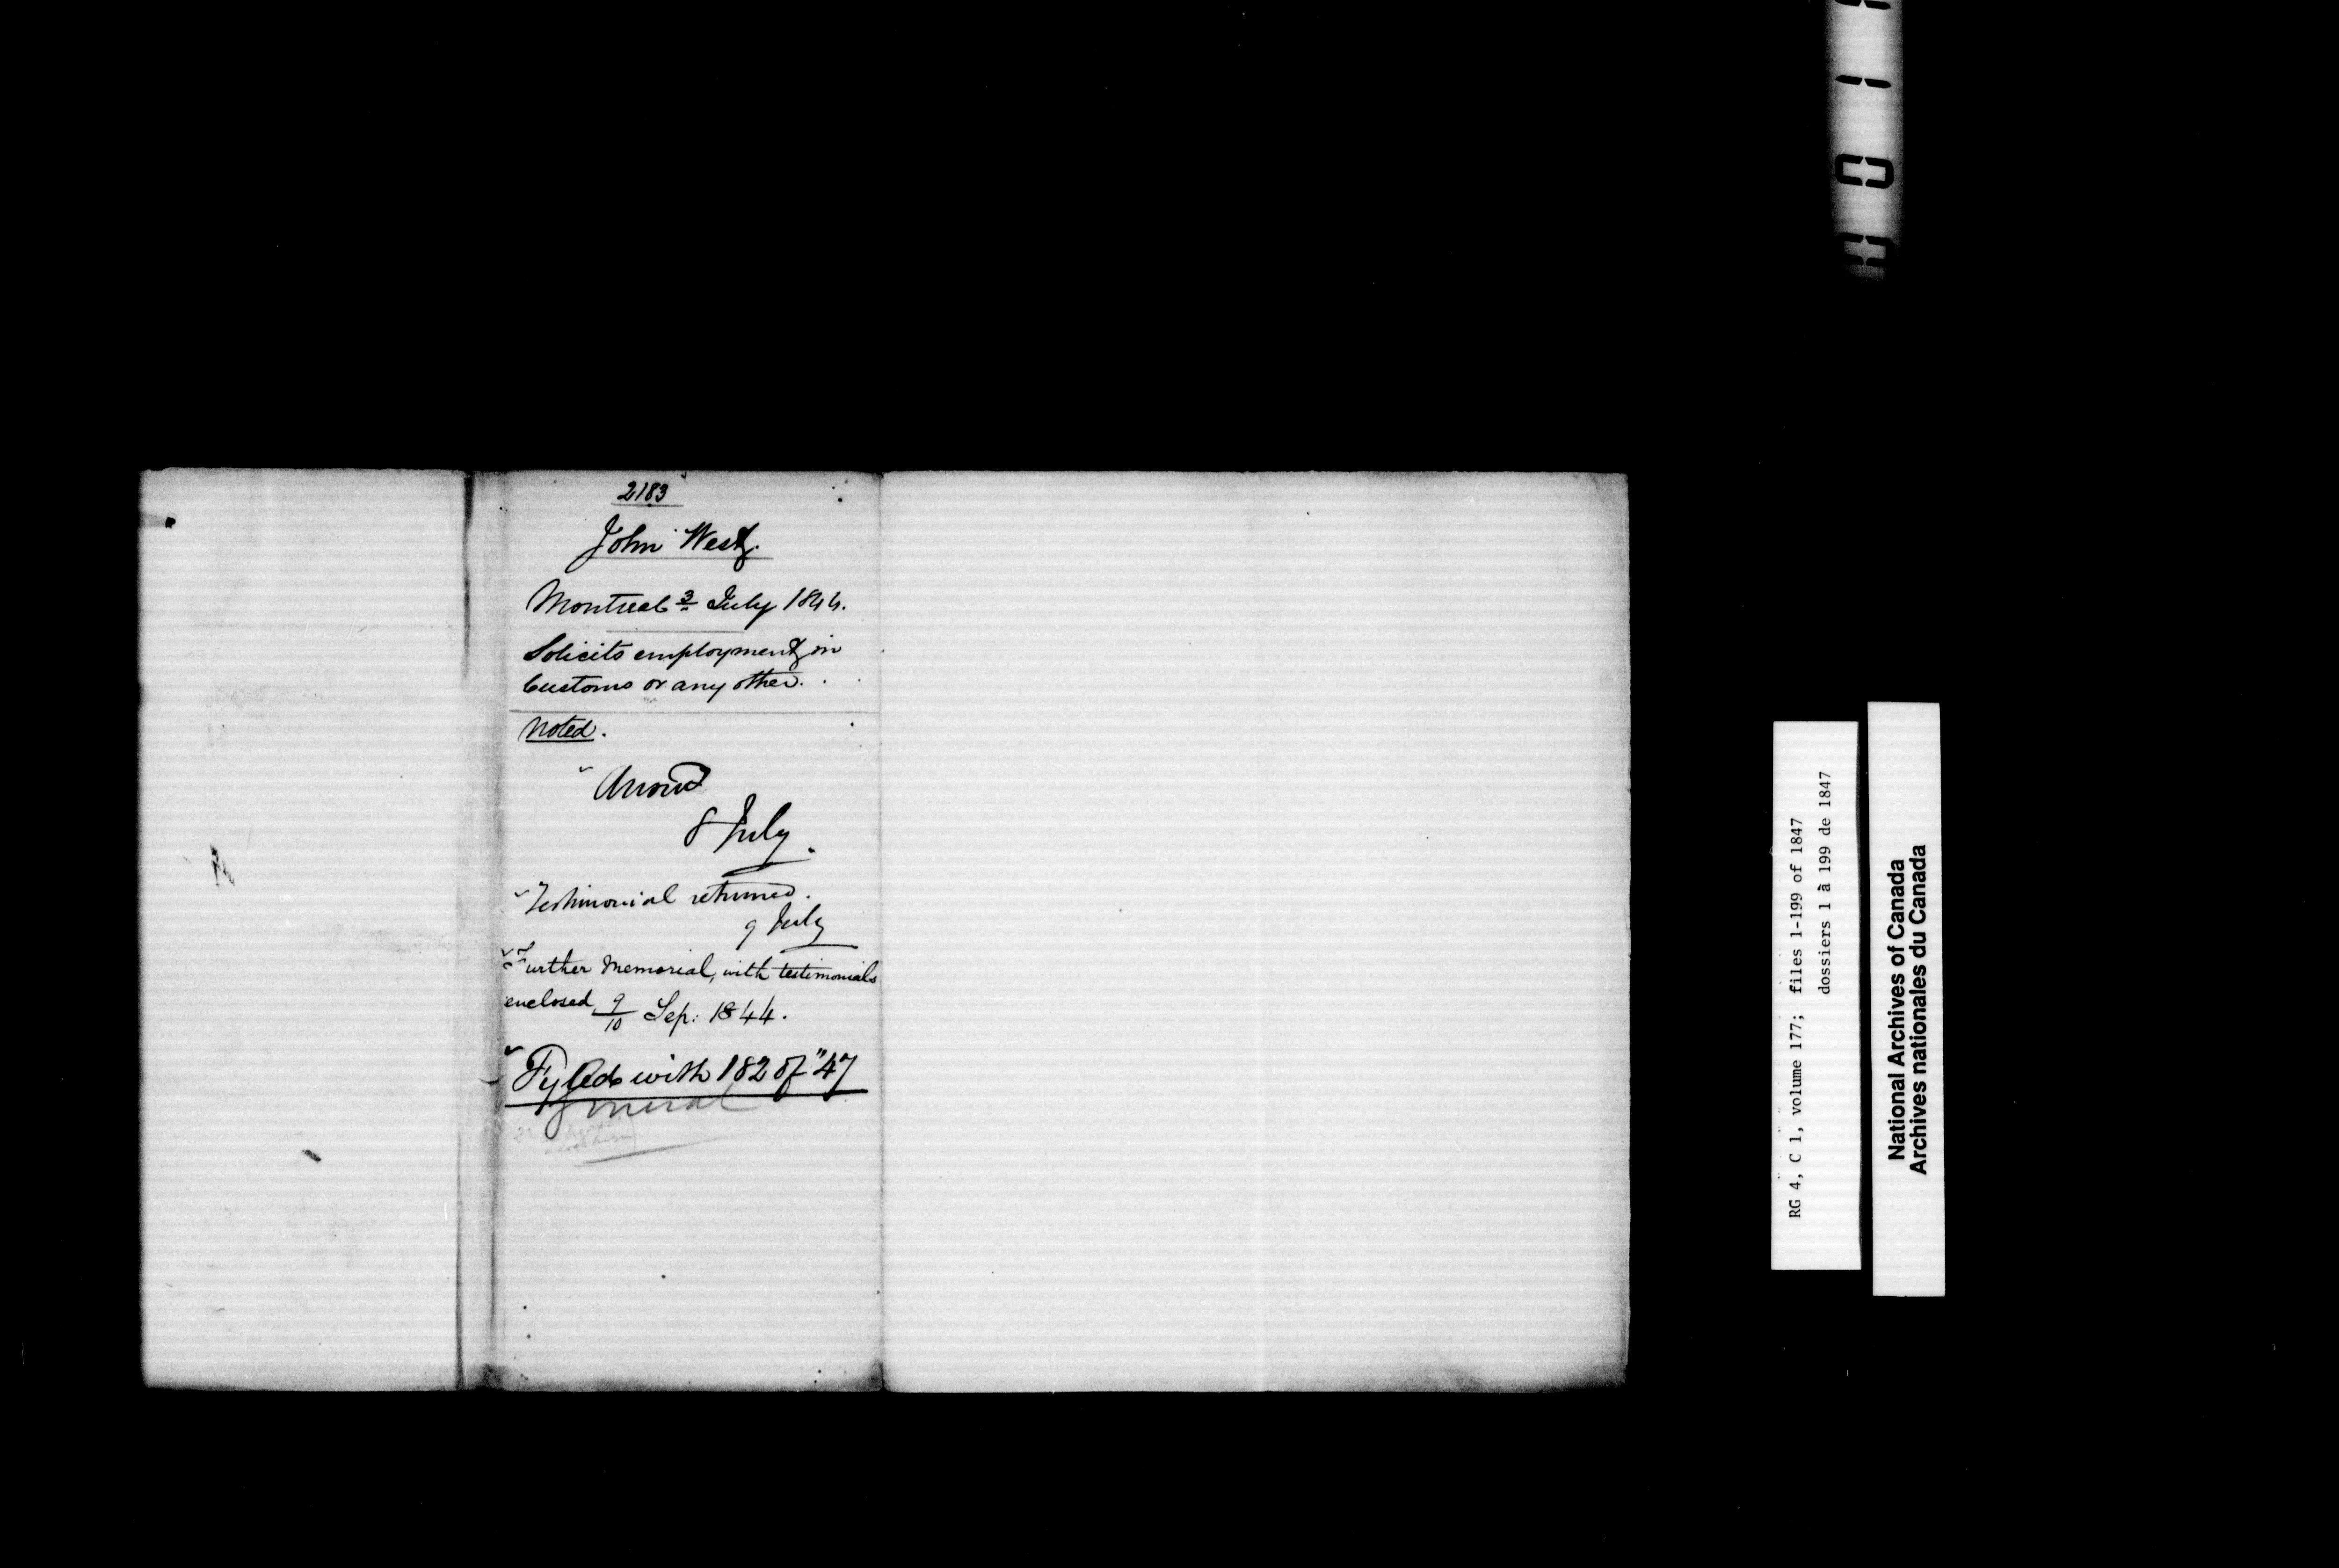 2183
John West.
Montreal 3 July 1844.
Solicits employment in
Customs or any other.
Noted.
Answd
8 July.
Testimonial returned.
9 July
Further Memorial, with testimonials
enclosed, 9/10 Sep: 1844.
Fyled with 182 of "47
General
RG 4, C 1, volume 177; files 1-199 of 1847
dossiers 1 à 199 de 1847
National Archives of Canada
Archives nationales du Canada